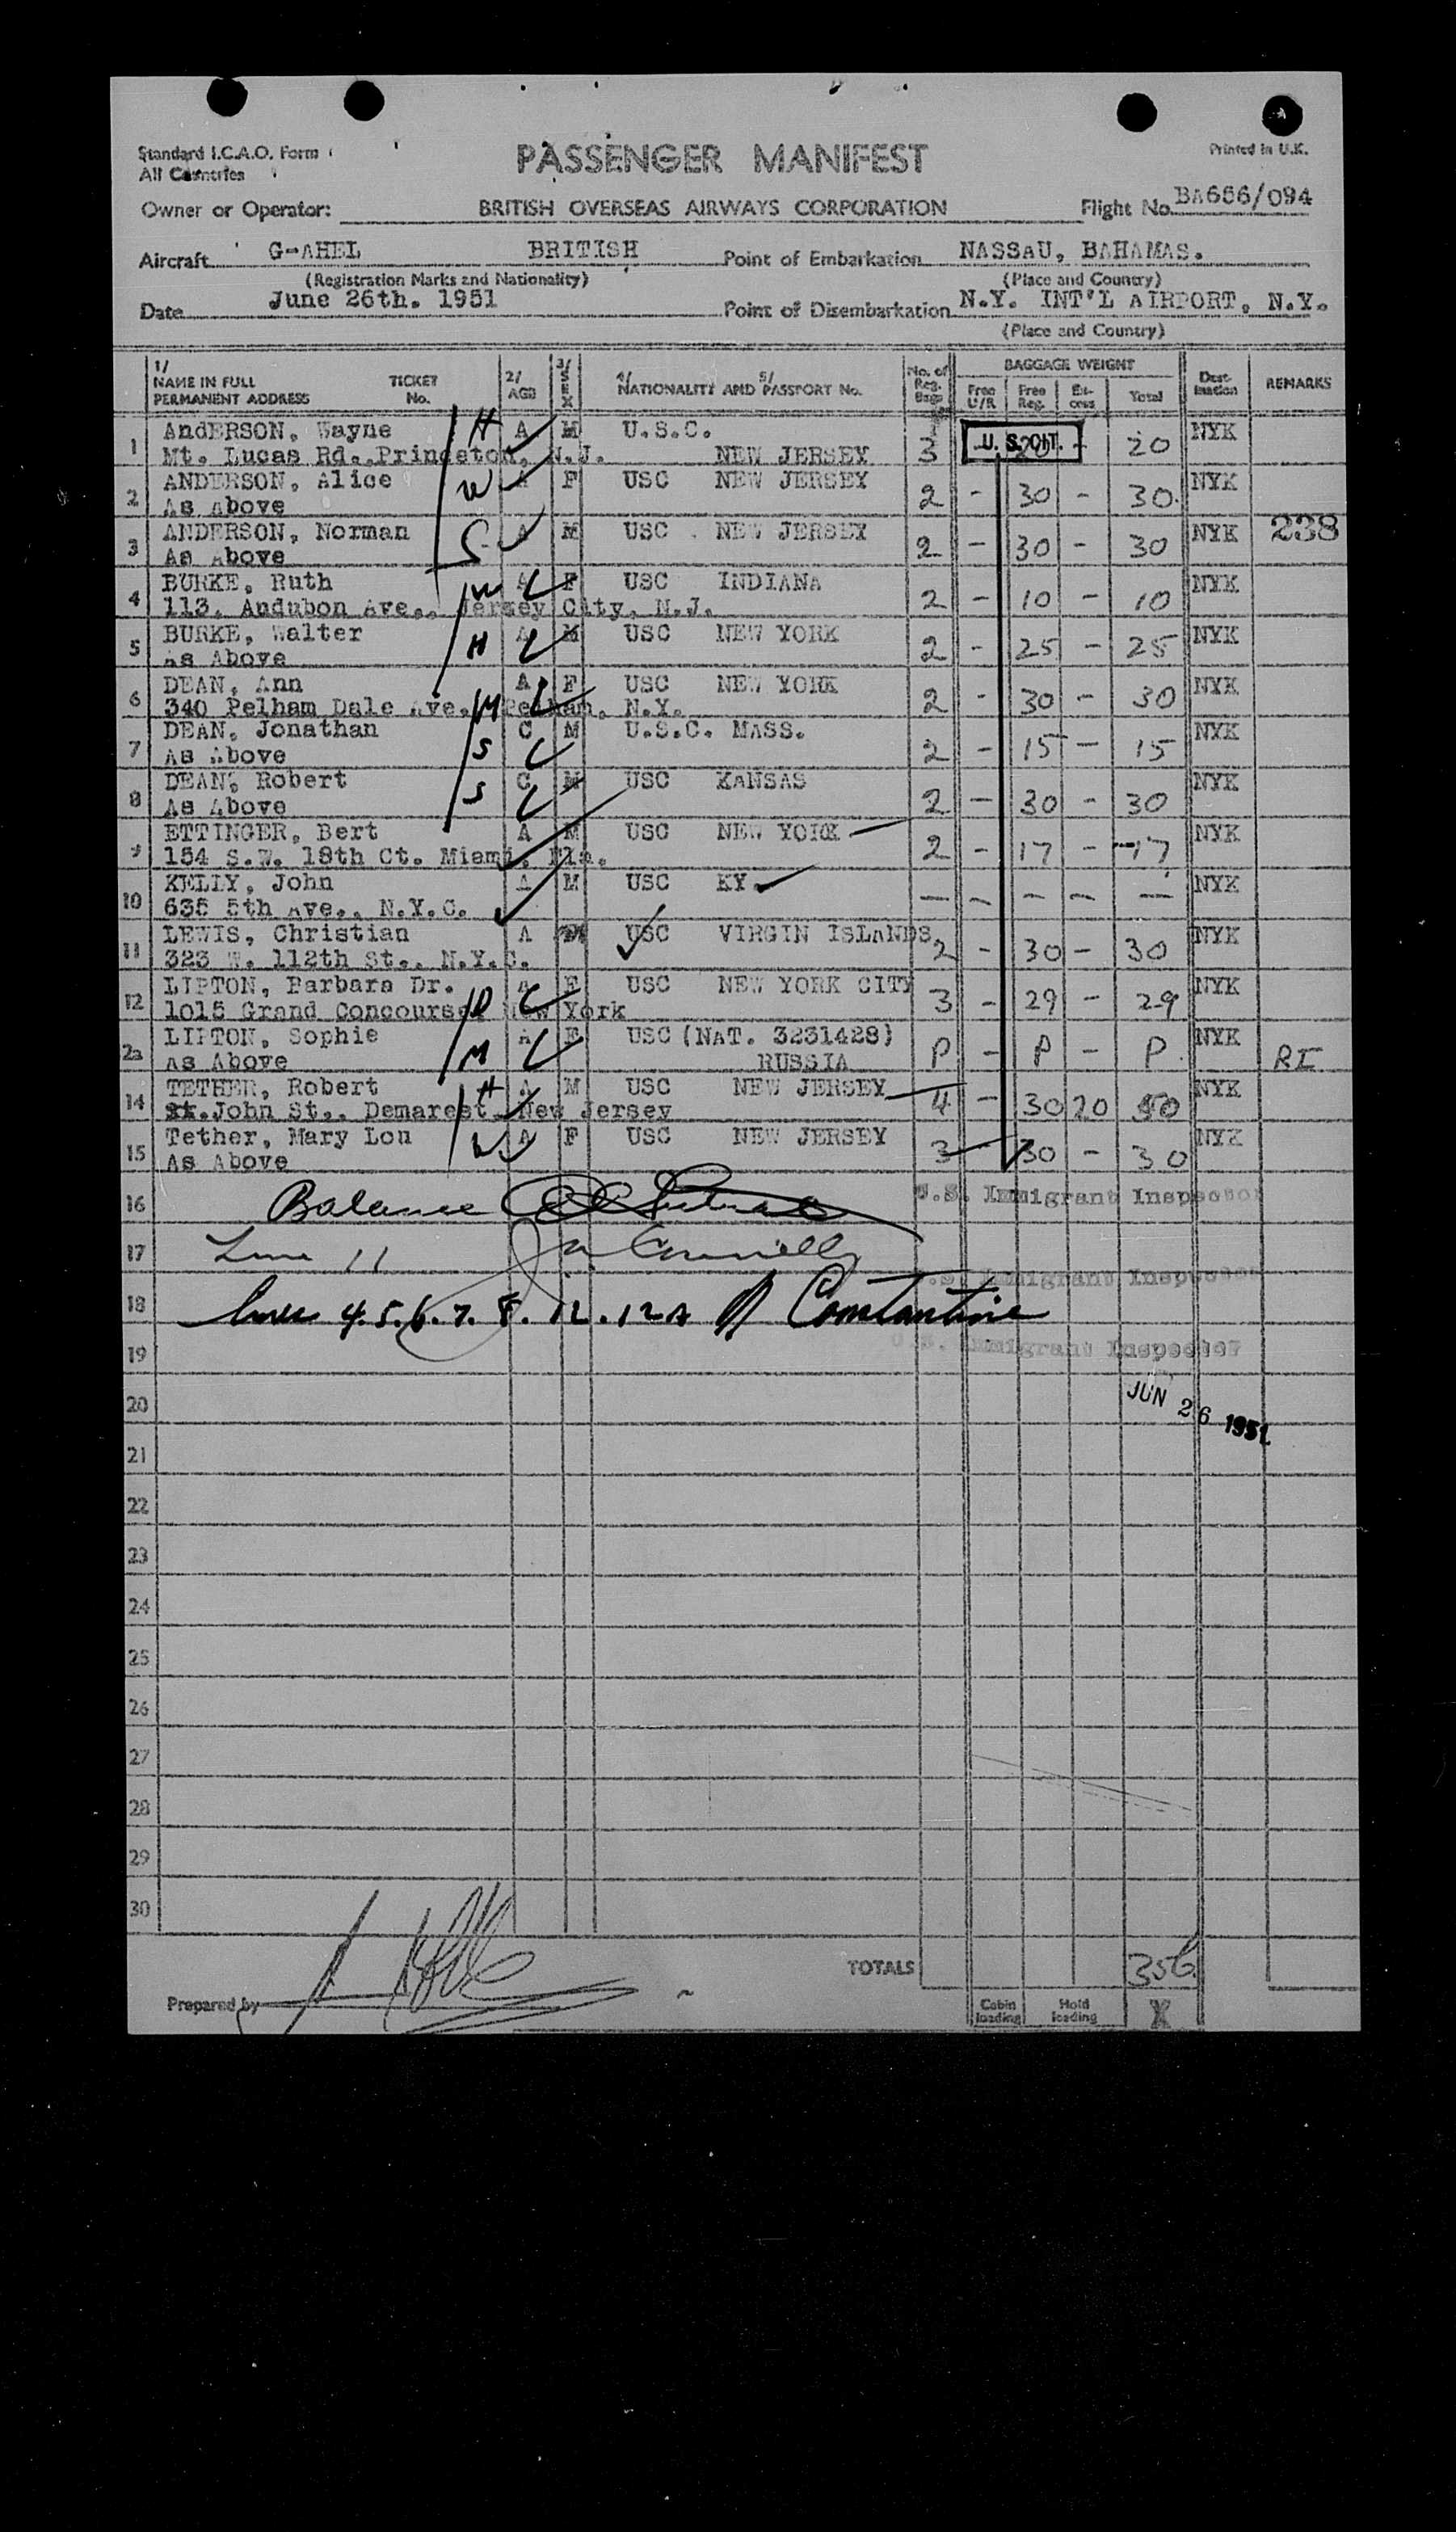 Standard I.C.A.O. Form
All Countries
PASSENGER MANIFEST
Printed in U.K.
Owner or Operator: BRITISH OVERSEAS AIRWAYS CORPORATION Flight No. BA656/094
Aircraft G-AHEL BRITISH Point of Embarkation NASSAU, BAHAMAS.
(Registration Marks and Nationality) (Place and Country)
Date June 26th. 1951 Point of Disembarkation N.Y. INT'L AIRPORT, N.Y.
(Place and Country)
1/ NAME IN FULL PERMANENT ADDRESS TICKET No. 2/ AGE 3/ SEX 4/ NATIONALITY AND 5/ PASSPORT No. No. of Reg. Bags BAGGAGE WEIGHT Free U/R Free Reg. Excess Total Destination REMARKS
1 AndERSON, Wayne H A M U.S.C. 3 U.S. CIT. - 20 NYK
Mt. Lucas Rd. Princeton, N.J. NEW JERSEY
2 ANDERSON, Alice W A F USC NEW JERSEY 2 - 30 - 30 NYK
As Above
3 ANDERSON, Norman S A M USC NEW JERSEY 2 - 30 - 30 NYK 238
As Above
4 BURKE, Ruth W A F USC INDIANA 2 - 10 - 10 NYK
113, Audubon Ave., Jersey City, N.J.
5 BURKE, Walter H A M USC NEW YORK 2 - 25 - 25 NYK
As Above
6 DEAN, Ann M A F USC NEW YORK 2 - 30 - 30 NYK
340 Pelham Dale Ave. Pelham, N.Y.
7 DEAN, Jonathan S C M U.S.C. MASS. 2 - 15 - 15 NYK
As Above
8 DEAN, Robert S C M USC KANSAS 2 - 30 - 30 NYK
As Above
9 ETTINGER, Bert A M USC NEW YORK 2 - 17 - 17 NYK
154 S.W. 18th Ct. Miami, Fla.
10 KELLY, John A M USC KY. - - - - - NYK
635 5th Ave., N.Y.C.
11 LEWIS, Christian A M USC VIRGIN ISLANDS 2 - 30 - 30 NYK
323 W. 112th St., N.Y.C.
12 LIPTON, Barbara Dr. D A F USC NEW YORK CITY 3 - 29 - 29 NYK
1015 Grand Concourse, New York
12a LIPTON, Sophie M A F USC (NAT. 3231428) P - P - P NYK RI
As Above RUSSIA
14 TETHER, Robert H A M USC NEW JERSEY 4 - 30 20 50 NYK
St. John St., Demarest, New Jersey
15 Tether, Mary Lou W A F USC NEW JERSEY 3 - 30 - 30 NYK
As Above
16 Balance U.S. Immigrant Inspector
17 Line 11 Connelly
U.S. Immigrant Inspector
18 Lines 4.5.6.7.8.12.12A Constantine
19 U.S. Immigrant Inspector
20 JUN 26 1951
21
22
23
24
25
26
27
28
29
30
TOTALS 356
Prepared by Cabin loading Hold loading X